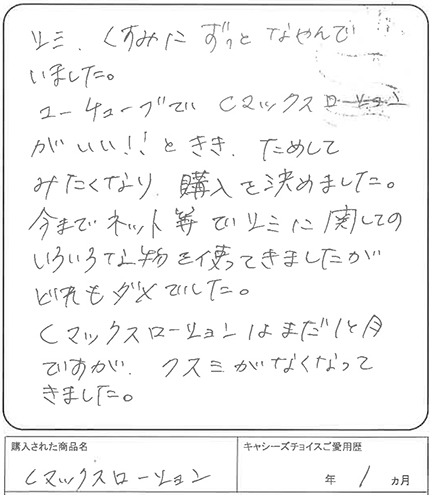 シミ、くすみに ずっと なやんで
いました。
ユーチューブで Cマックスローション
がいい!!ときき、ためして
みたくなり、購入を決めました。
今までネット等でシミに関しての
いろいろな物を使ってきましたが
どれもダメでした。
Cマックスローションはまだ1ヶ月
ですが、クスミがなくなって
きました。
購入された商品名
キャシーズチョイスご愛用歴
Cマックスローション
年 1 ヵ月